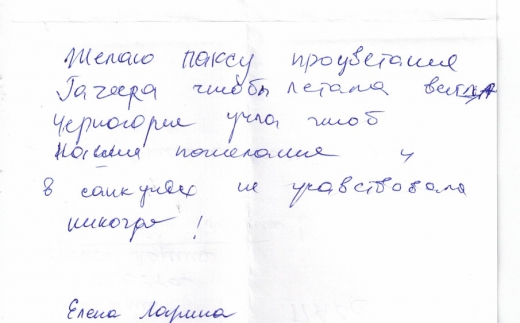 Желаю паксу процветания
Гагера чтобы летала
Черногория учла чтоб
пожелания и
в санкциях не учавствовала
никогда!
Елена Ларина